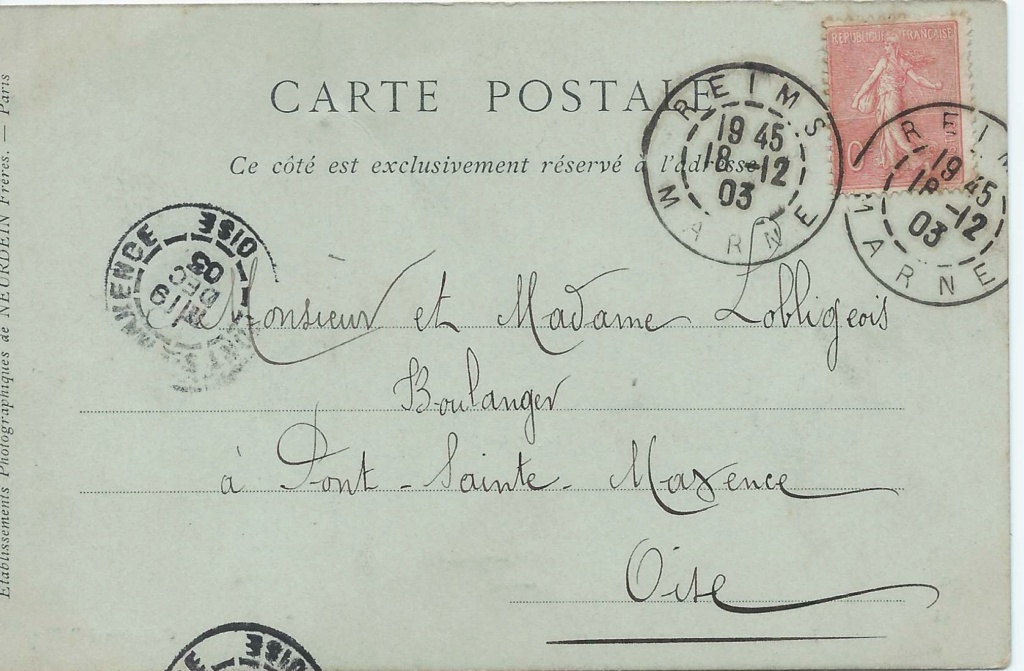 CARTE POSTALE
Ce côté est exclusivement réservé à l'adresse
REPUBLIQUE FRANÇAISE
REIMS
19 45
18 -12
03
MARNE
REIM
19 45
18 -12
03
MARNE
OISE
19
DEC
03
Monsieur et Madame Lobligeois
Boulanger
à Pont-Sainte-Maxence
Oise
OISE
Etablissements Photographiques de NEURDEIN Frères. — Paris